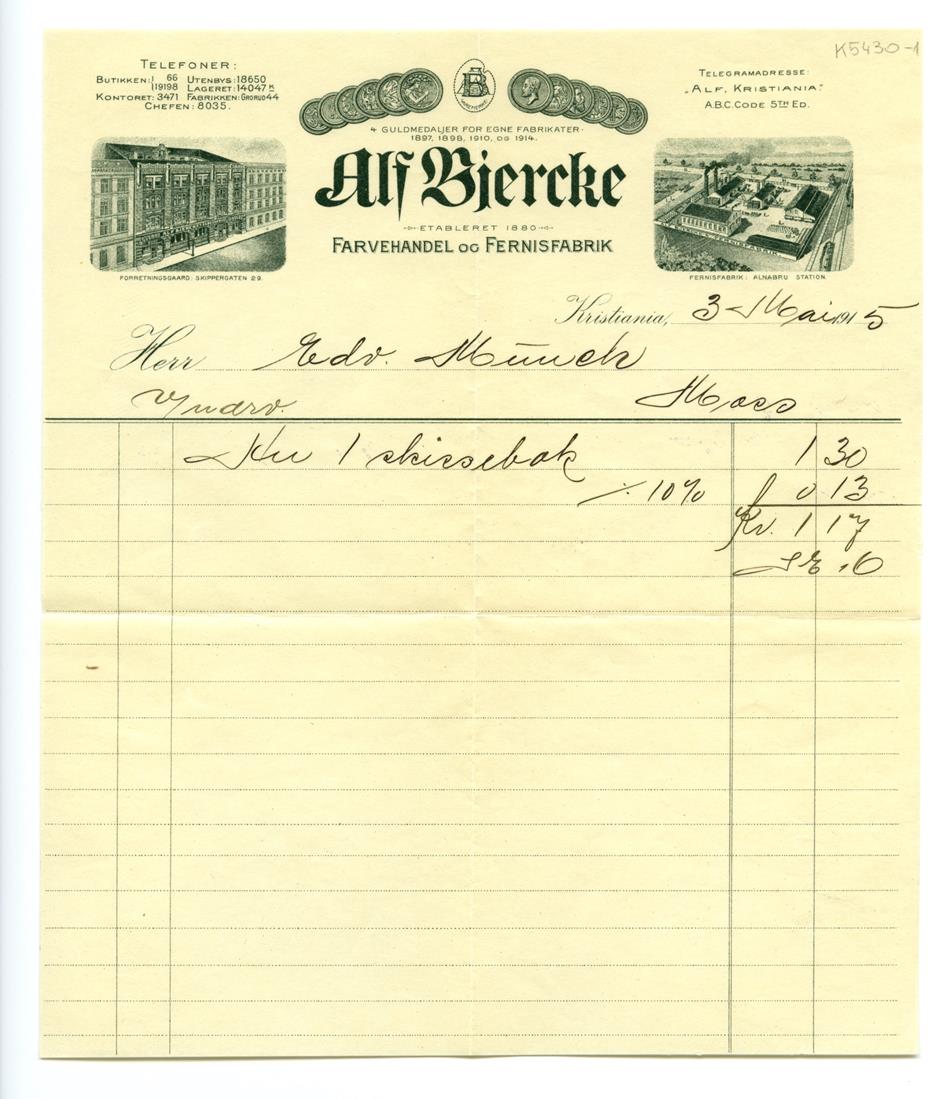 K5430-1
TELEFONER:
BUTIKKEN: 66 UTENBYS: 18650
19198 LAGERET: 14047
KONTORET: 3471 FABRIKKEN: GRORUD 44
CHEFEN: 8035.
AB
VAREMERKE
TELEGRAMADRESSE:
"ALF, KRISTIANIA."
A.B.C. CODE 5TH ED.
4 GULDMEDALJER FOR EGNE FABRIKATER
1897, 1898, 1910, OG 1914.
Alf Bjercke
ETABLERET 1880
FARVEHANDEL OG FERNISFABRIK
FORRETNINGSGAARD: SKIPPERGATEN 29.
FERNISFABRIK: ALNABRU STATION.
Kristiania, 3 Mai 1915
Herr Edv. Münch
Moss
1 skissebok 1 30
÷ 10% 0 13
Kr. 1 17